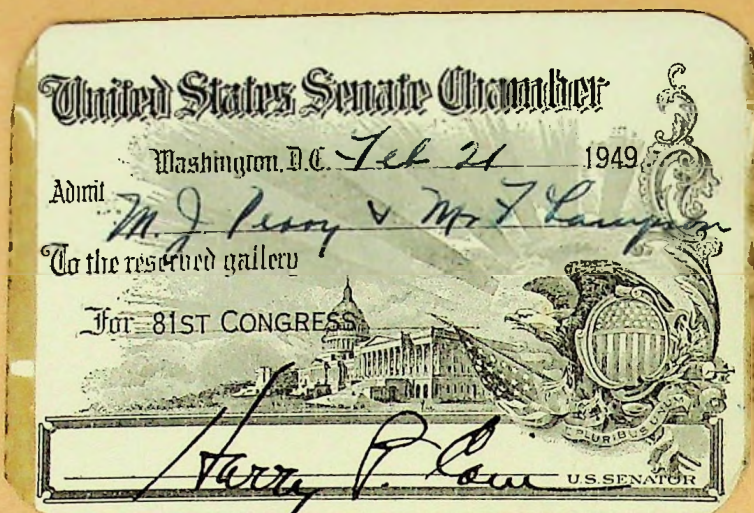 United States Senate Chamber
Washington, D.C. Feb 21 1949
Admit
M. J. Perry & Mr F
To the reserved gallery
For 81ST CONGRESS
PLURIBUS UNUM
Harry P. Cain
U.S. SENATOR